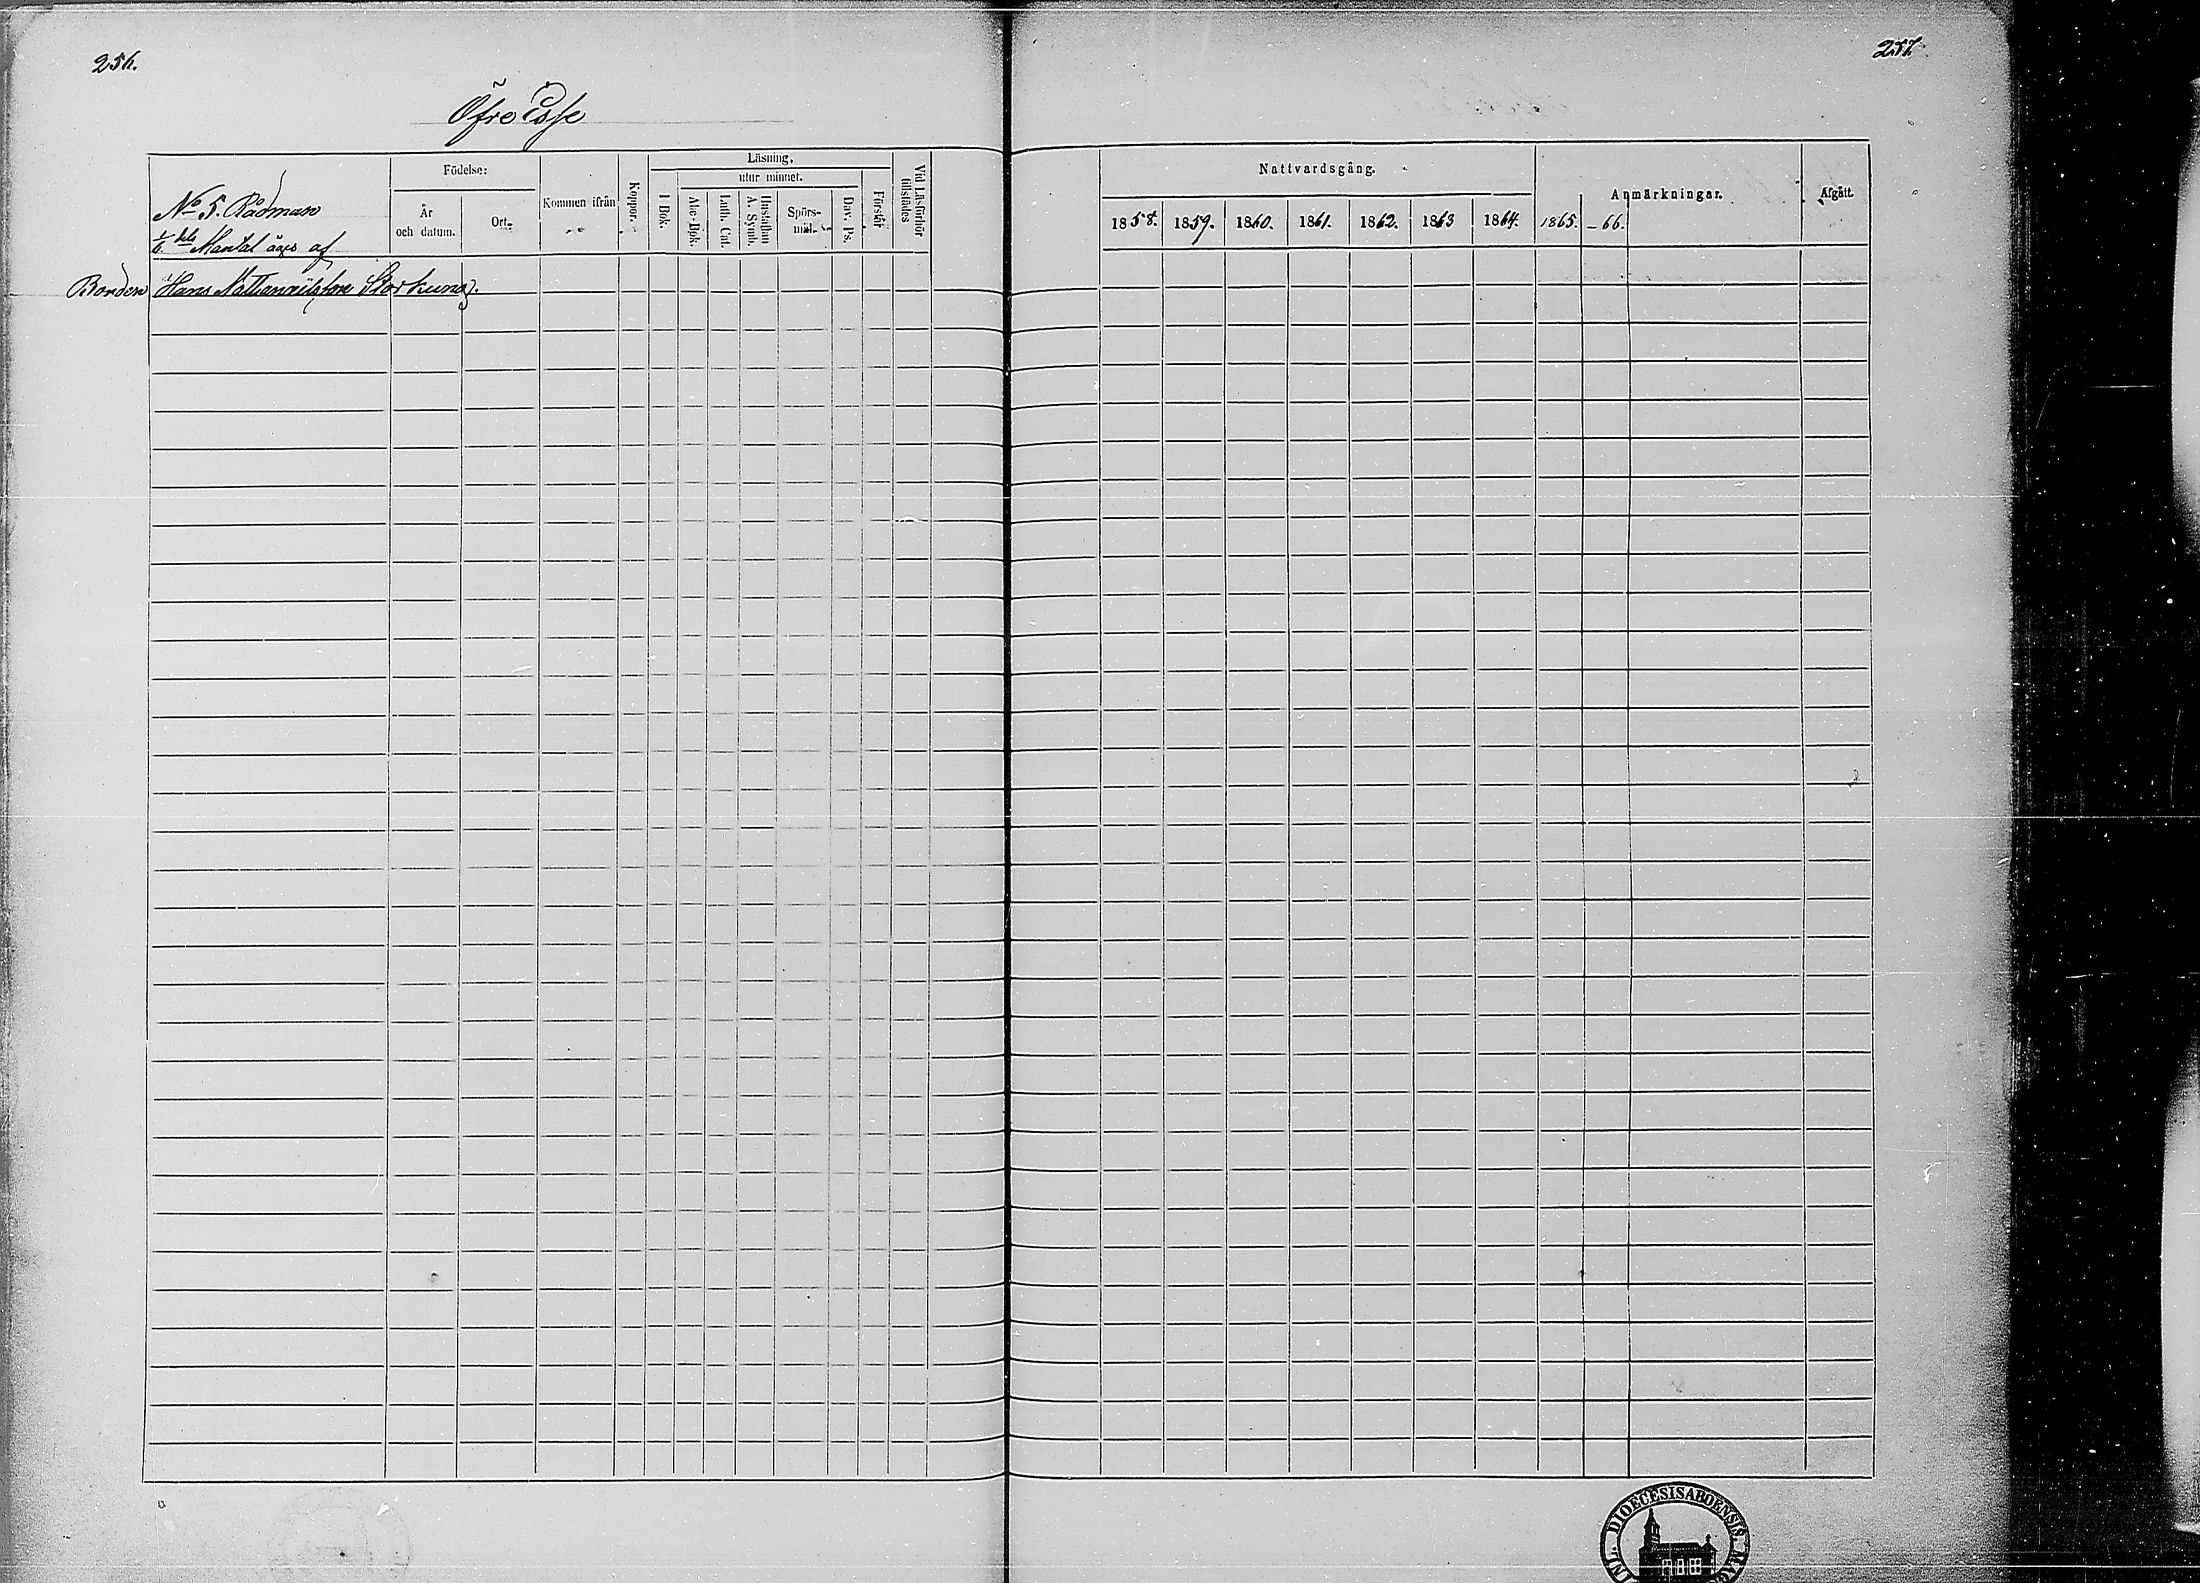 256.
257.
Öfre Esse
No 5. Rådman
1/6 dels Mantal äges af
Bonden Hans Mattsson Storkung.
Födelse:
År och datum.
Ort.
Kommen ifrån
Koppor.
Läsning.
utur minnet.
I Bok.
Abc-Bok.
Luth. Cat.
Hustaflan A. Symb.
Spörs-mål.
Dav. Ps.
Förstår
Vid Läsförhör tillstädes
Nattvardsgång.
1858. 1859. 1860. 1861. 1862. 1863 1864. 1865. -66.
Anmärkningar.
Afgått.
DIOECESIS ABOENSIS